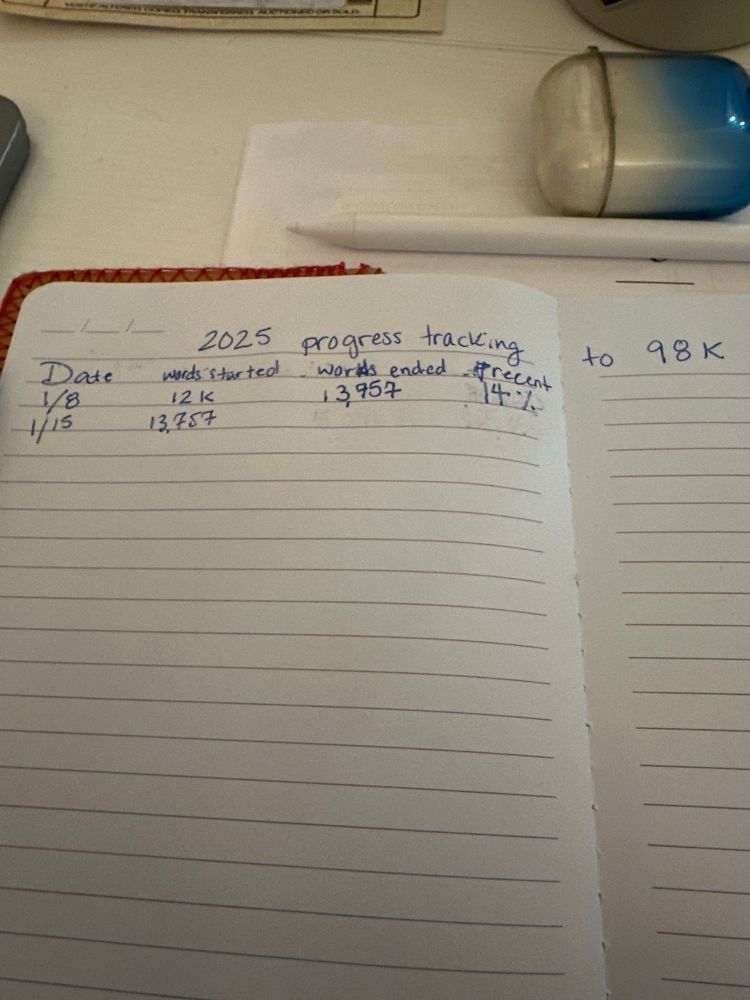 2025 progress tracking to 98K
Date words started words ended Precent
1/8 12K 13,957 14%
1/15 13,757